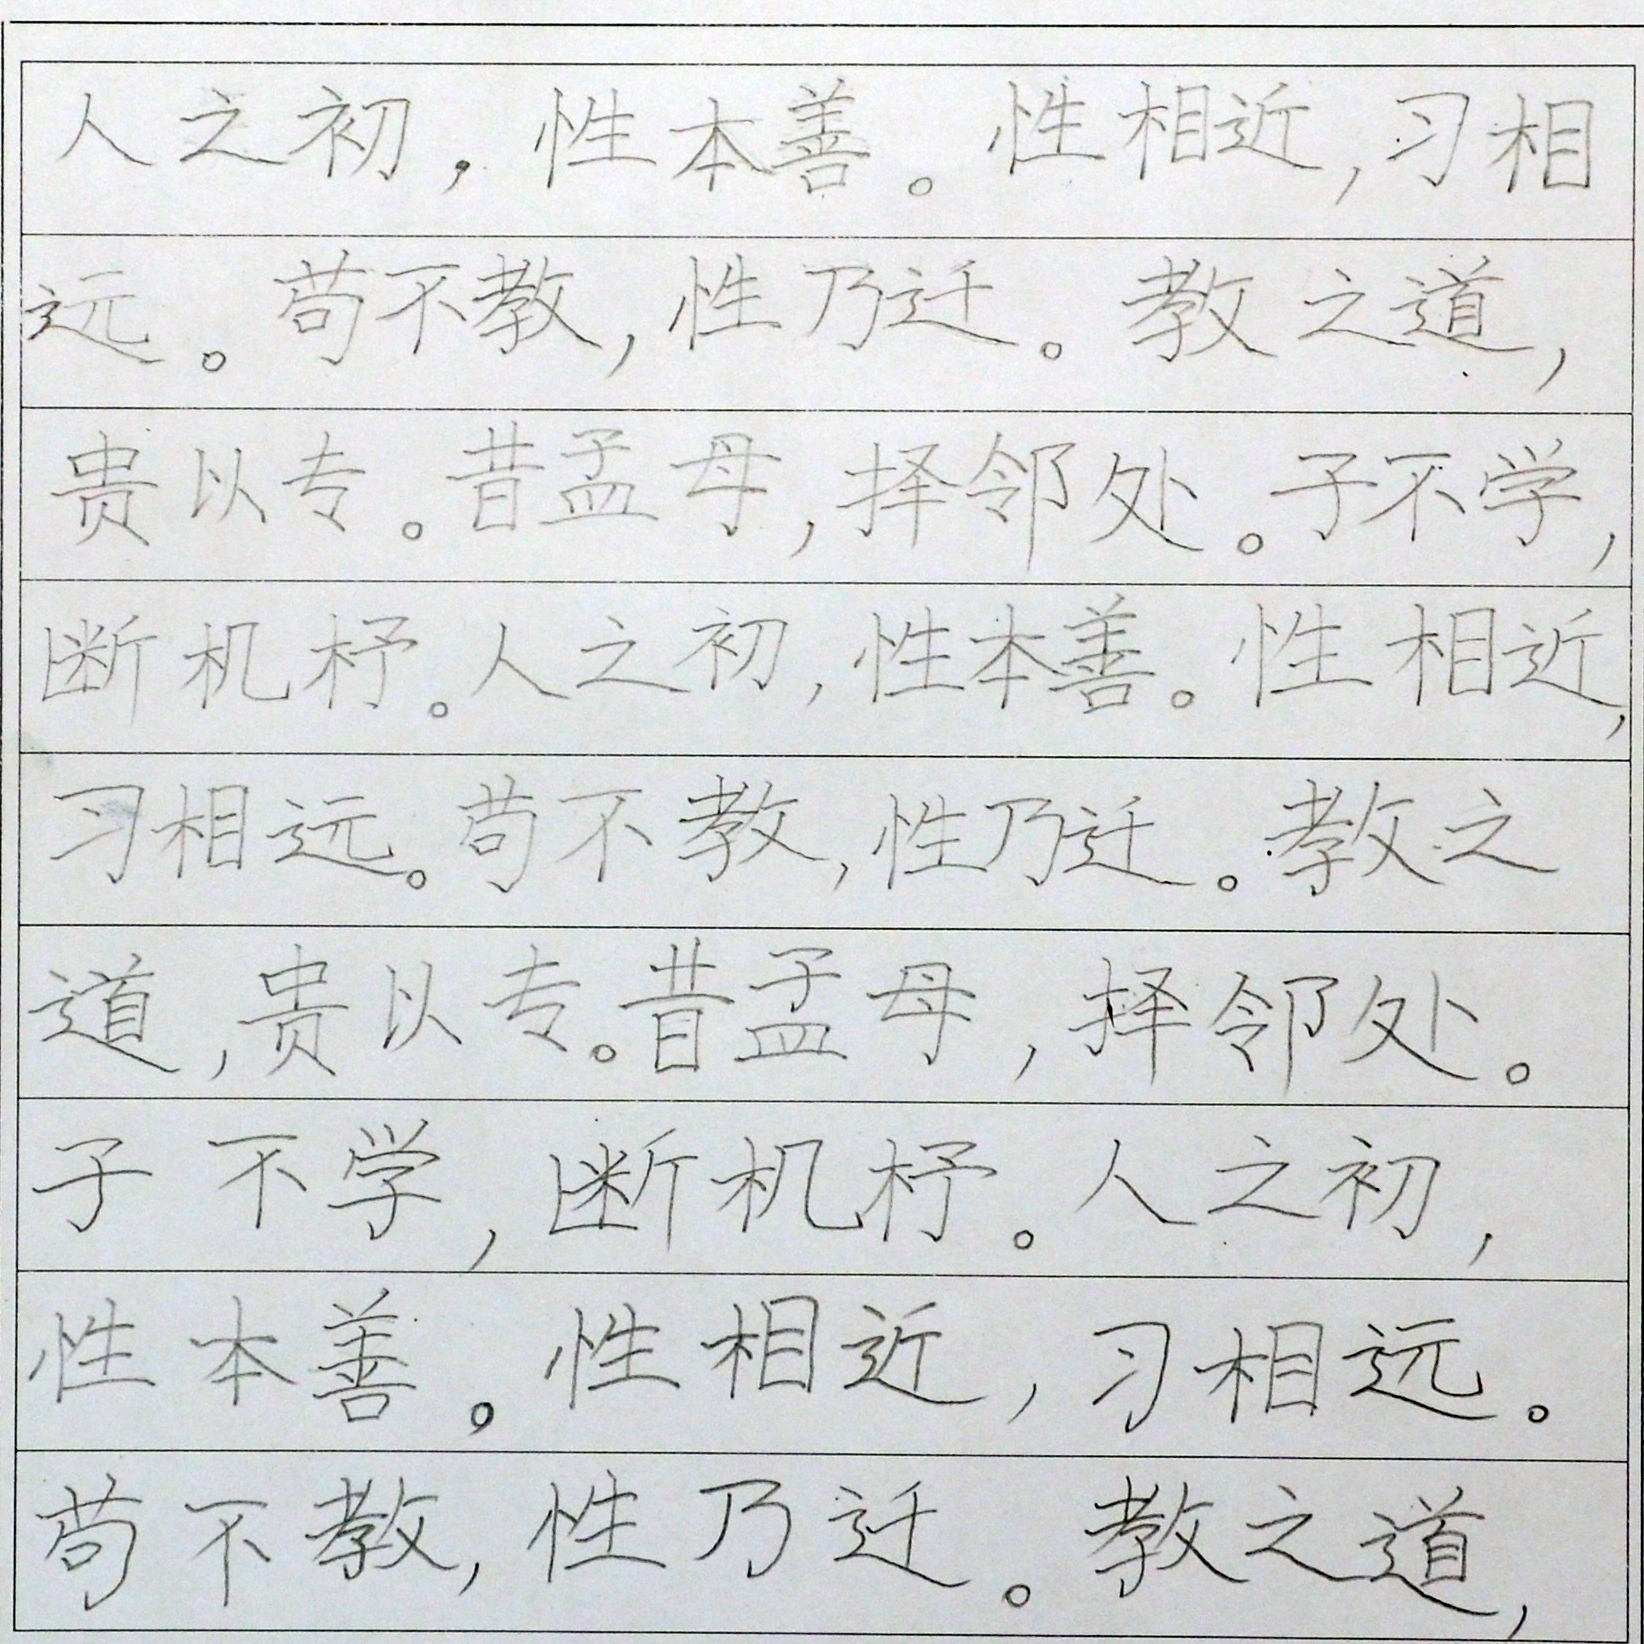 人之初，性本善。性相近，习相
远。苟不教，性乃迁。教之道，
贵以专。昔孟母，择邻处。子不学，
断机杼。人之初，性本善。性相近，
习相远。苟不教，性乃迁。教之
道，贵以专。昔孟母，择邻处。
子不学，断机杼。人之初，
性本善。性相近，习相远。
苟不教，性乃迁。教之道，